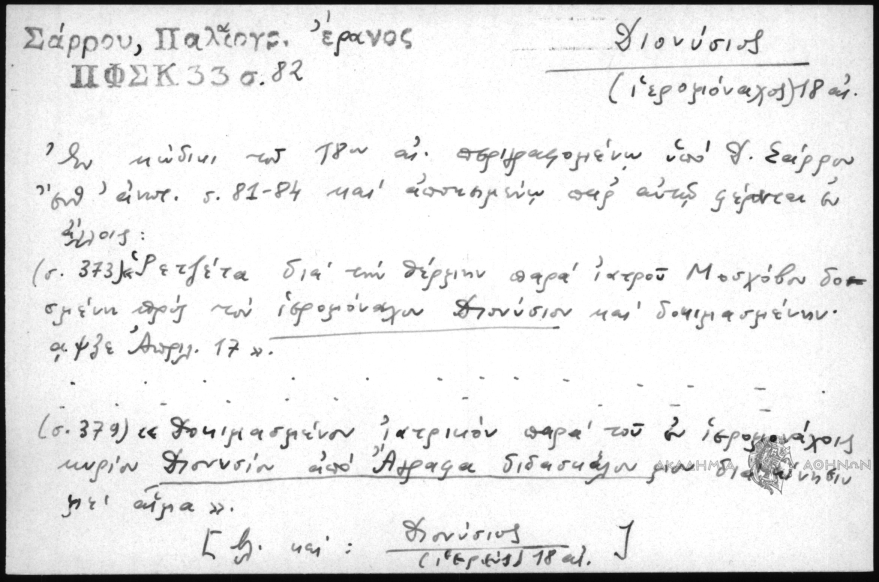 Σάρρου, Παλαιογρ. Ἔρανος
Διονύσιος
ΠΦΣΚ 33 σ. 82
(ἱερομόναχος) 18 αἰ.
Ἐν κώδικι τοῦ 18ου αἰ. περιγραφομένῳ ὑπό Δ. Σάρρου
ἔνθ' ἀνωτ. σ. 81-84 καί ἀποκειμένῳ παρ' αὐτῷ φέρεται ἐν
ἄλλοις:
(σ. 373) «Ρετζέτα διά τήν θέρμην παρά ἰατροῦ Μοσχόβου δο-
σμένη πρός τόν ἱερομόναχον Διονύσιον καί δοκιμασμένην.
αψξε Ἀπριλ. 17».
(σ. 379) «Δοκιμασμένον ἰατρικόν παρά τοῦ ἐν ἱερομονάχοις
κυρίου Διονυσίου ἀπό Ἄγραφα διδασκάλου μου διά κίνησιν
μέ αἷμα».
[βλ. καί: Διονύσιος
(ἱερεύς) 18 αἰ. ]
ΑΚΑΔΗΜΙΑ ΑΘΗΝΩΝ